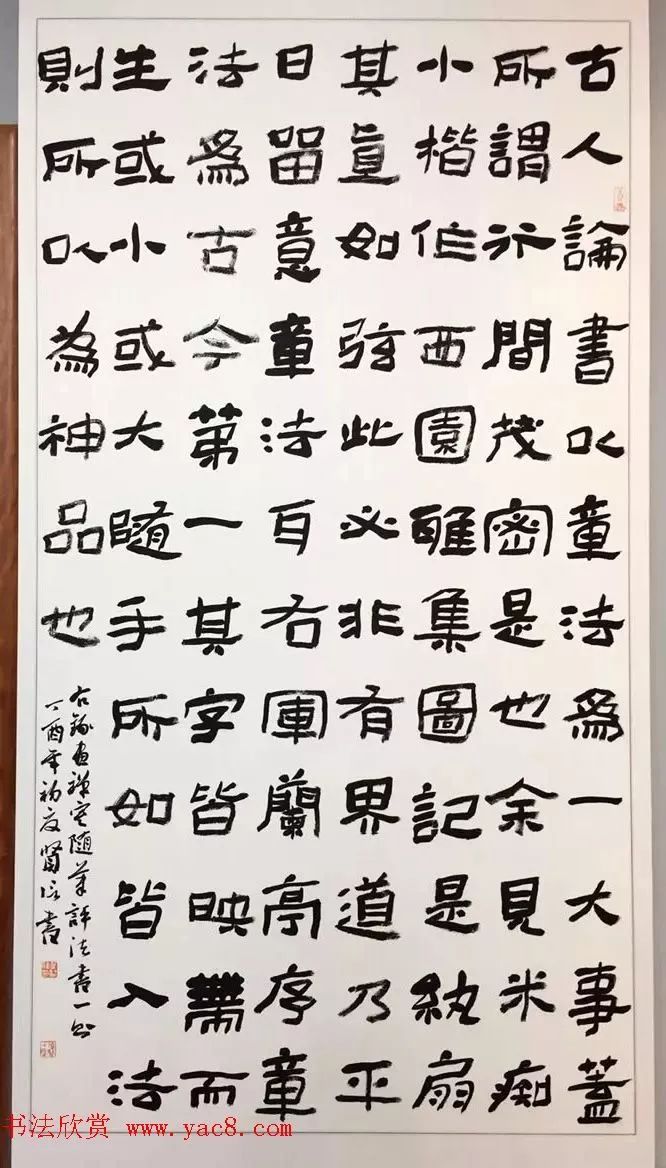 古人論書以章法爲一大事蓋
所謂行間茂密是也余見米痴
小楷作西園雅集圖記是紈扇
其直如弦此必非有界道乃平
日留意章法耳右軍蘭亭序章
法爲古今第一其字皆映帶而
生或小或大隨手所如皆入法
則所以為神品也
右錄畫禪室随筆評法書一則
丁酉年初夏賢書
书法欣赏 www.yac8.com